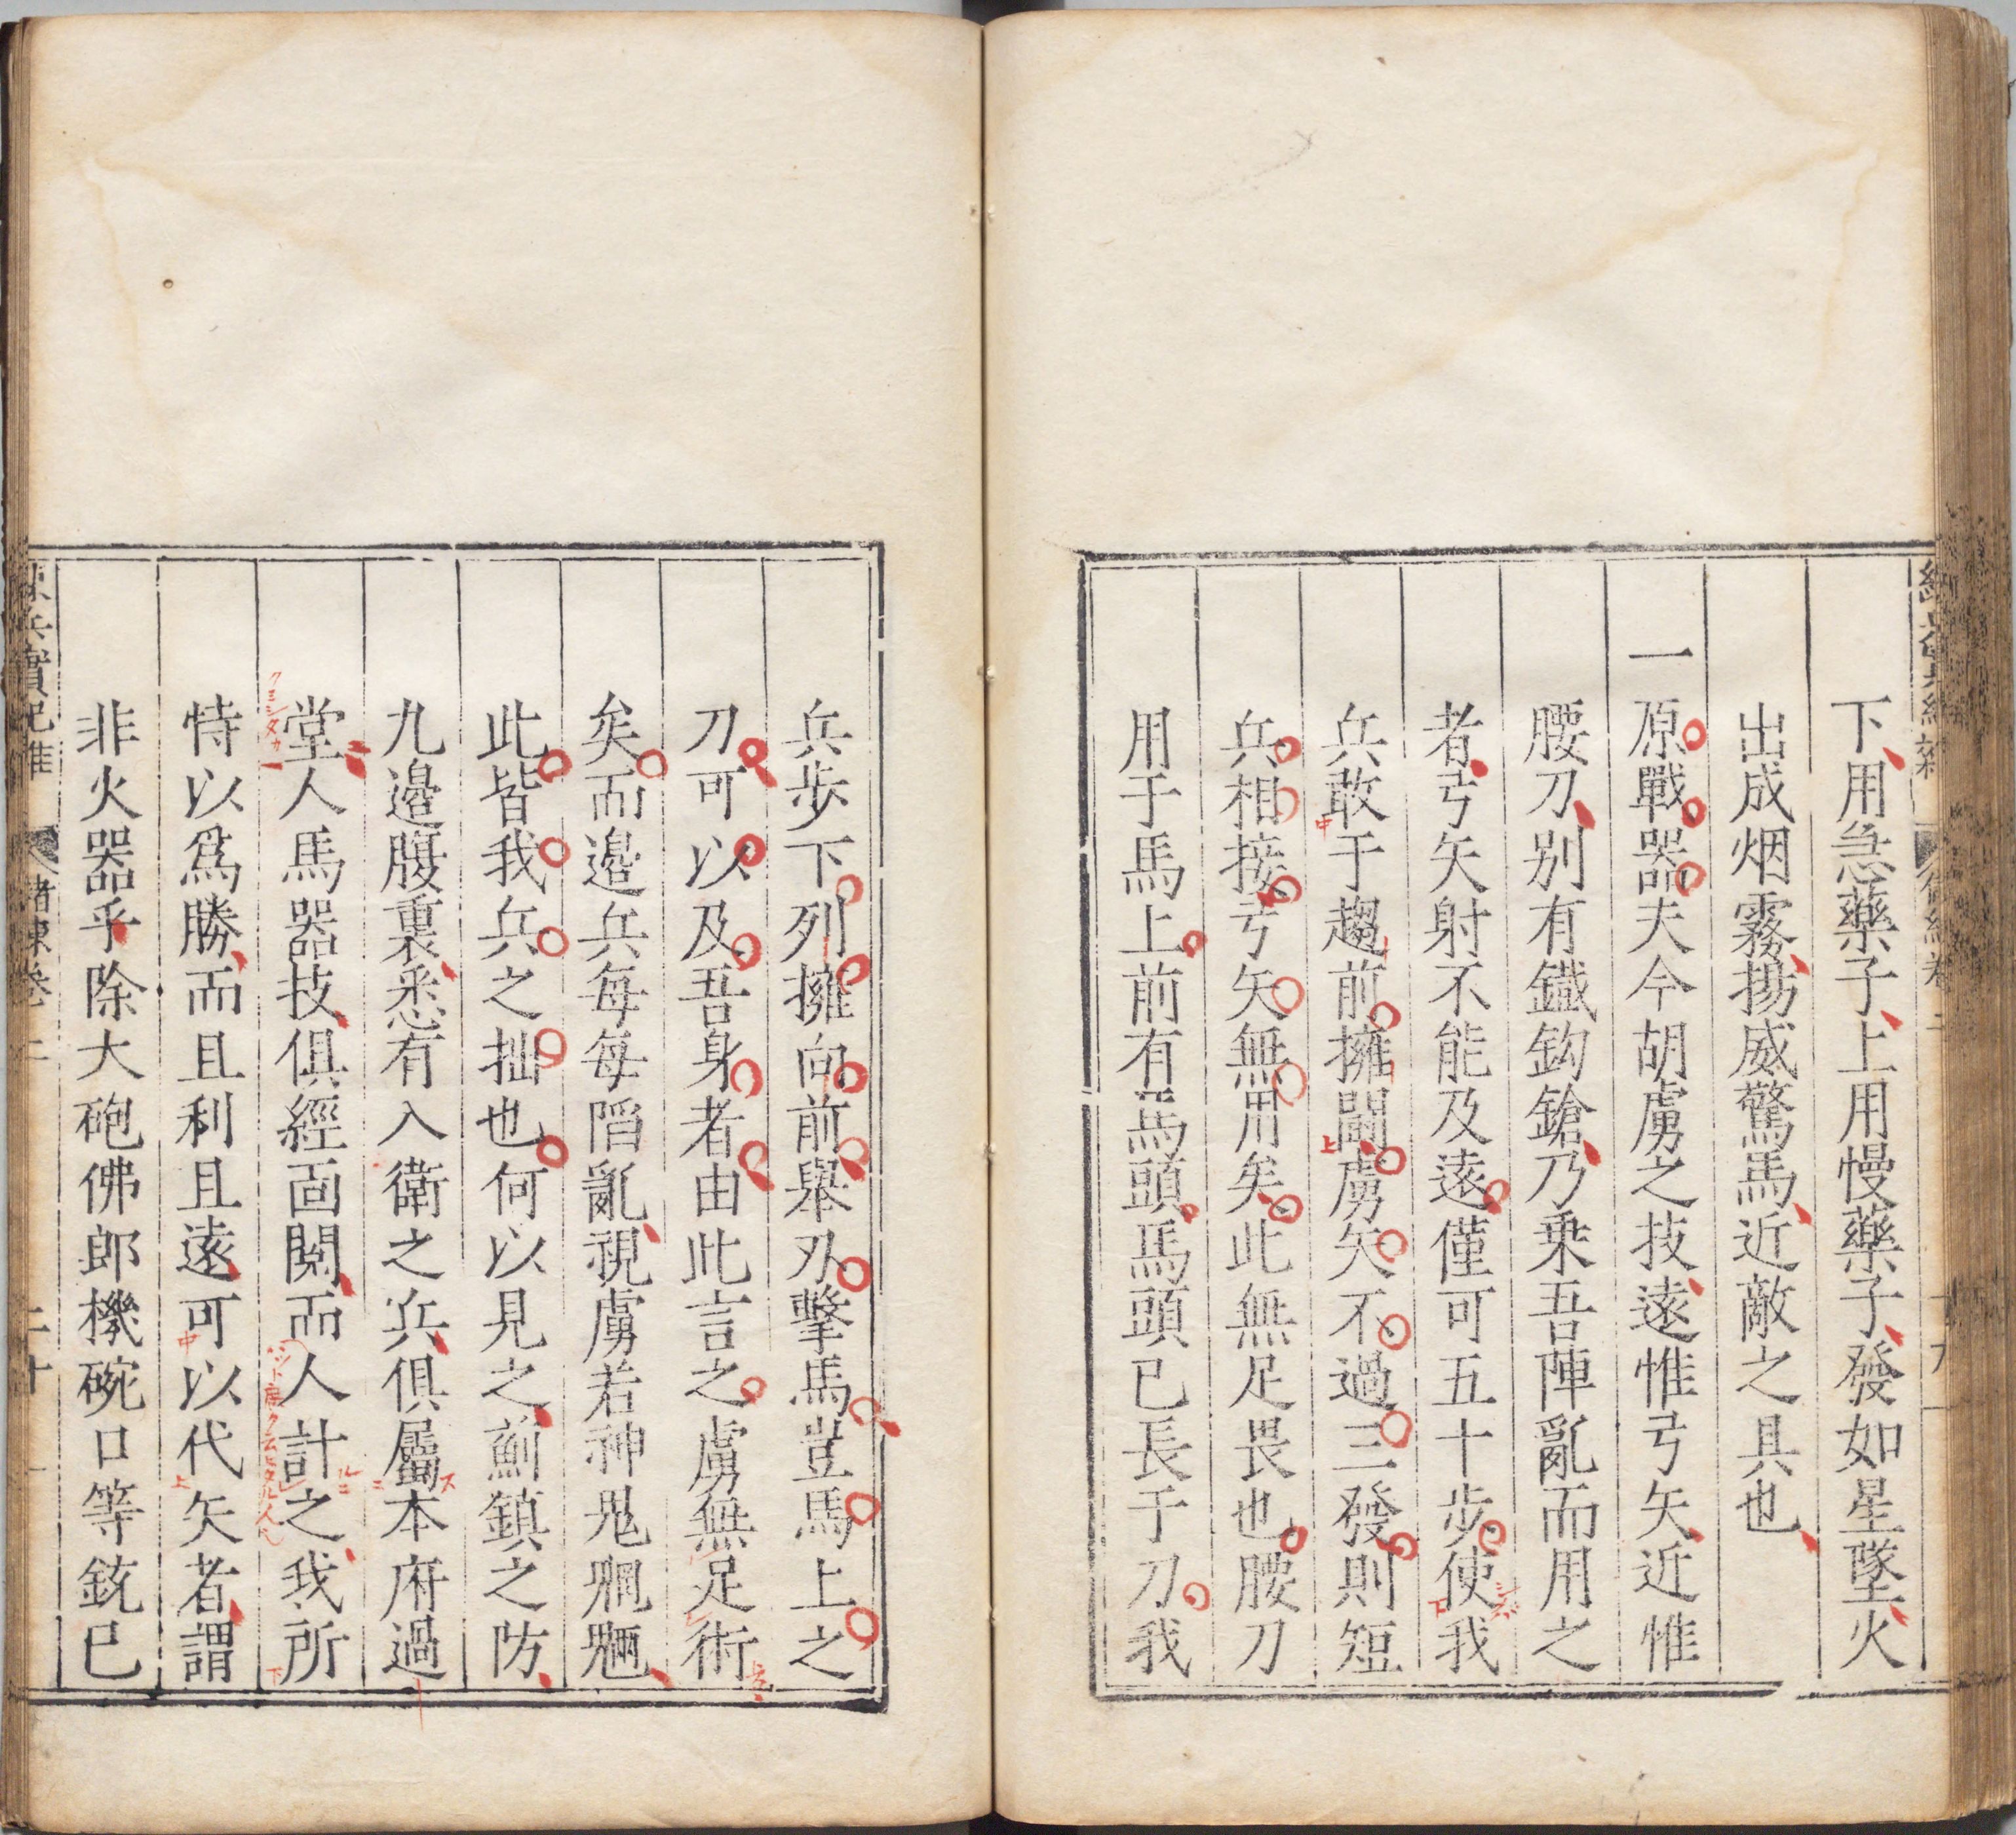 下用急藥子上用慢藥子發如星墜火
出成烟霧揚威驚馬近敵之具也
一原戰器夫今胡虜之技遠惟弓矢近惟
腰刀別有鐵鈎鎗乃乗吾陣亂而用之
者弓矢射不能及遠僅可五十步使我
兵敢于趨前擁鬬虜矢不過三發則短
兵相接弓矢無用矣此無足畏也腰刀
用于馬上前有馬頭馬頭已長于刀我
兵步下列擁向前舉刃擊馬豈馬上之
刀可以及吾身者由此言之虜無足術
矣而邉兵每每䧟亂視虜若神鬼魍魎
此皆我兵之拙也何以見之薊鎮之防
九邉腹裏悉有入衛之兵俱屬本府過
堂人馬器技俱經面閱而人計之我所
恃以爲勝而且利且遠可以代矢者謂
非火器乎除大砲佛郎機碗口等銃已